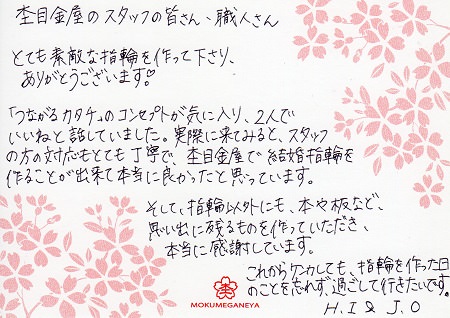 杢目金屋のスタッフの皆さん、職人さん
とても素敵な指輪を作って下さり、
ありがとうございます♡
「つながるカタチ」のコンセプトが気に入り、2人で
いいねと話していました。実際に来てみると、スタッフ
の方の対応もとても丁寧で、杢目金屋で結婚指輪を
作ることが出来て本当に良かったと思っています。
そして、指輪以外にも、本や板など、
思い出に残るものを作っていただき、
本当に感謝しています。
これからケンカしても、指輪を作った日
のことを忘れず過ごして行きたいです。
H.I & J.O
MOKUMEGANEYA